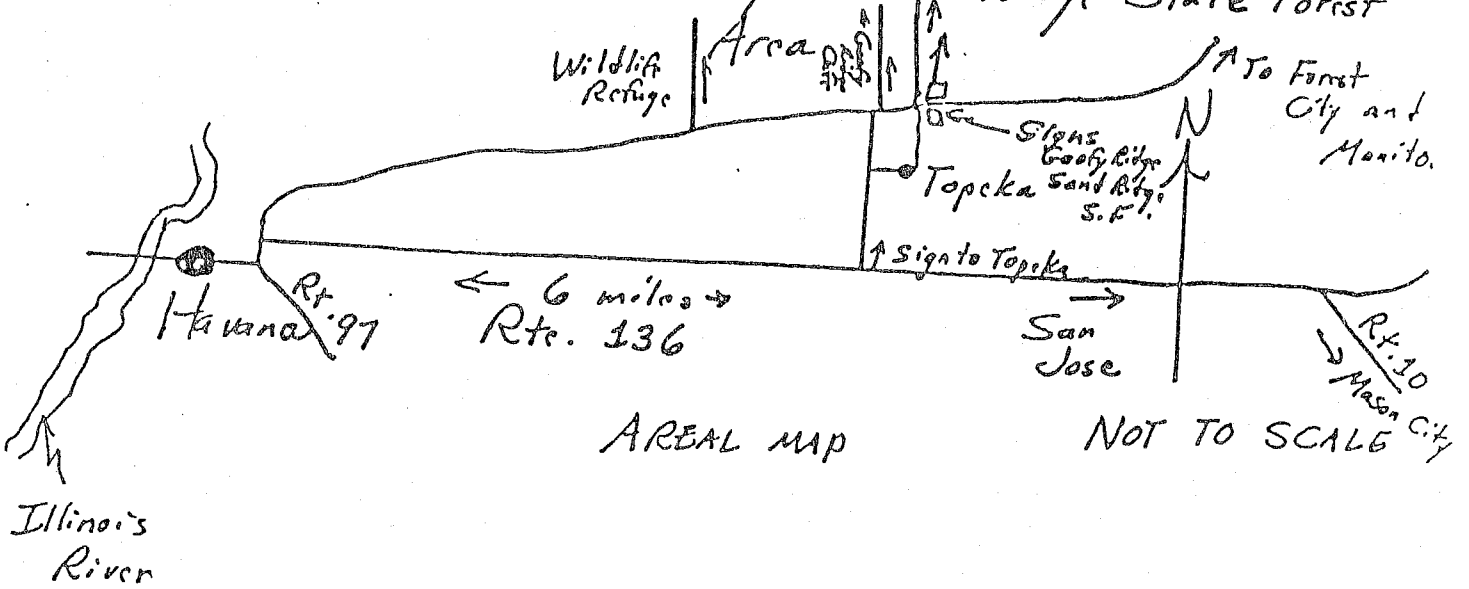 State Forest
Area
Wildlife
Refuge
To Forest
City and
Manito.
N
Signs
Goofy Ridge
Sand Ridge
S.F.
Topeka
Sign to Topeka
Havana
Rt. 97
6 miles
Rte. 136
San
Jose
Rt. 10
Mason City
AREAL MAP
NOT TO SCALE
Illinois
River